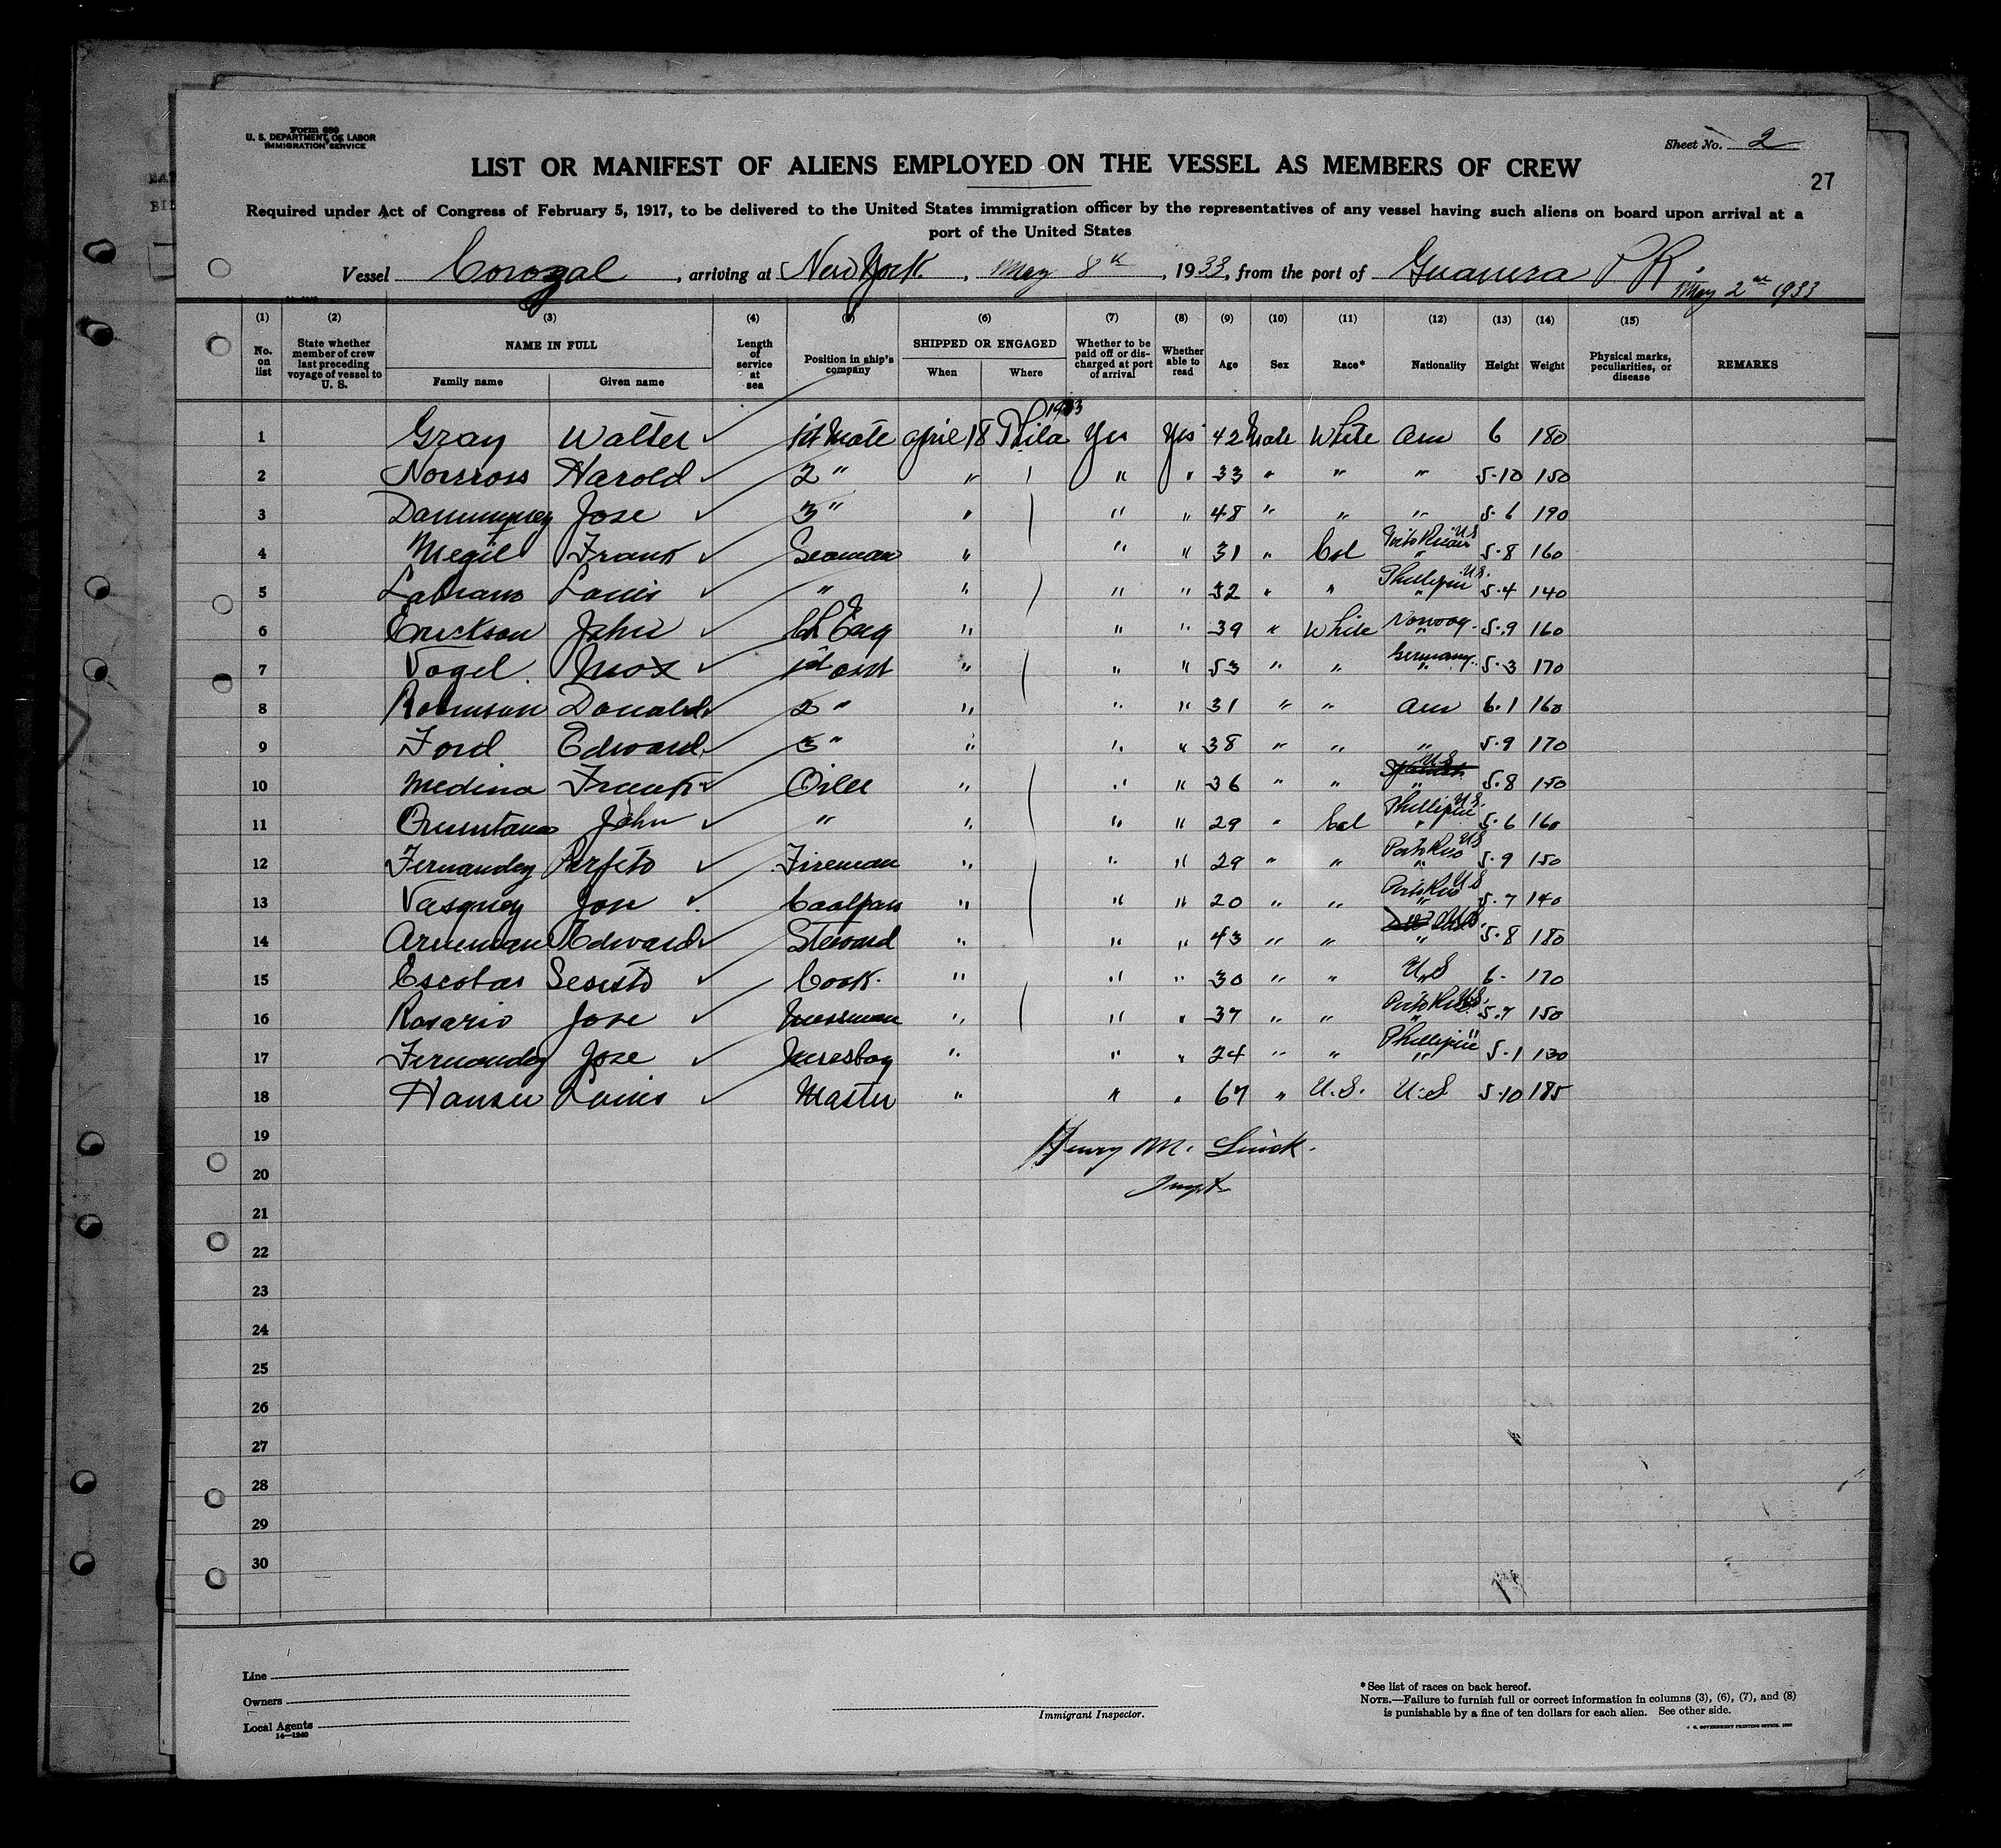 Form 680
U. S. DEPARTMENT OF LABOR
IMMIGRATION SERVICE
Sheet No. 2
LIST OR MANIFEST OF ALIENS EMPLOYED ON THE VESSEL AS MEMBERS OF CREW
27
Required under Act of Congress of February 5, 1917, to be delivered to the United States immigration officer by the representatives of any vessel having such aliens on board upon arrival at a
port of the United States
Vessel Corozal, arriving at New York, May 8th, 1933, from the port of P R,
May 2nd 1933
(1) (2) (3) (4) (5) (6) (7) (8) (9) (10) (11) (12) (13) (14) (15)
No. on list State whether member of crew last preceding voyage of vessel to U. S. NAME IN FULL Family name Given name Length of service at sea Position in ship's company SHIPPED OR ENGAGED When Where Whether to be paid off or discharged at port of arrival Whether able to read Age Sex Race* Nationality Height Weight Physical marks, peculiarities, or disease REMARKS
1 Gray Walter 1st Mate April 18 Phila 1933 Yes Yes 42 Male White Am 6 180
2 Norcross Harold 2 " " " " 33 " " " 5-10 150
3 Jose 3 " " " " 48 " " " 5-6 190
4 Megil Frank Seaman " " " 31 " Col Porto Rican U S " 5-8 160
5 Louis " " " " 32 " " Phillipin U.S. " 5-4 140
6 Erickson John Ch Eng " " " 39 " White Norway " 5-9 160
7 Vogel Max 1st asst " " " 53 " " Germany " 5-3 170
8 Robinson Donald 2 " " " " 31 " " Am 6-1 160
9 Ford Edward 3 " " " " 38 " " " 5-9 170
10 Medina Frank Oiler " " " 36 " " U S " 5-8 150
11 John " " " " 29 " Col Phillipin U.S. " 5-6 160
12 Fernandez Perfito Fireman " " " 29 " " Porto Rico U S " 5-9 150
13 Vasquez Jose Coalpass " " " 20 " " Porto Rico U S " 5-7 140
14 Edward Steward " " " 43 " " U.S. " 5-8 180
15 Escobar Sesisto Cook " " " 30 " " U.S 6- 170
16 Rosario Jose Messman " " " 37 " " Porto Rico U.S. " 5-7 150
17 Fernandez Jose Messboy " " " 24 " " Phillipin " " 5-1 130
18 Hansen Louis Master " " " 67 " U.S. U.S 5-10 185
19
Henry M. Linck.
20
Inspt
21
22
23
24
25
26
27
28
29
30
Line
Owners
Local Agents
14—1240
Immigrant Inspector.
* See list of races on back hereof.
NOTE.—Failure to furnish full or correct information in columns (3), (6), (7), and (8)
is punishable by a fine of ten dollars for each alien. See other side.